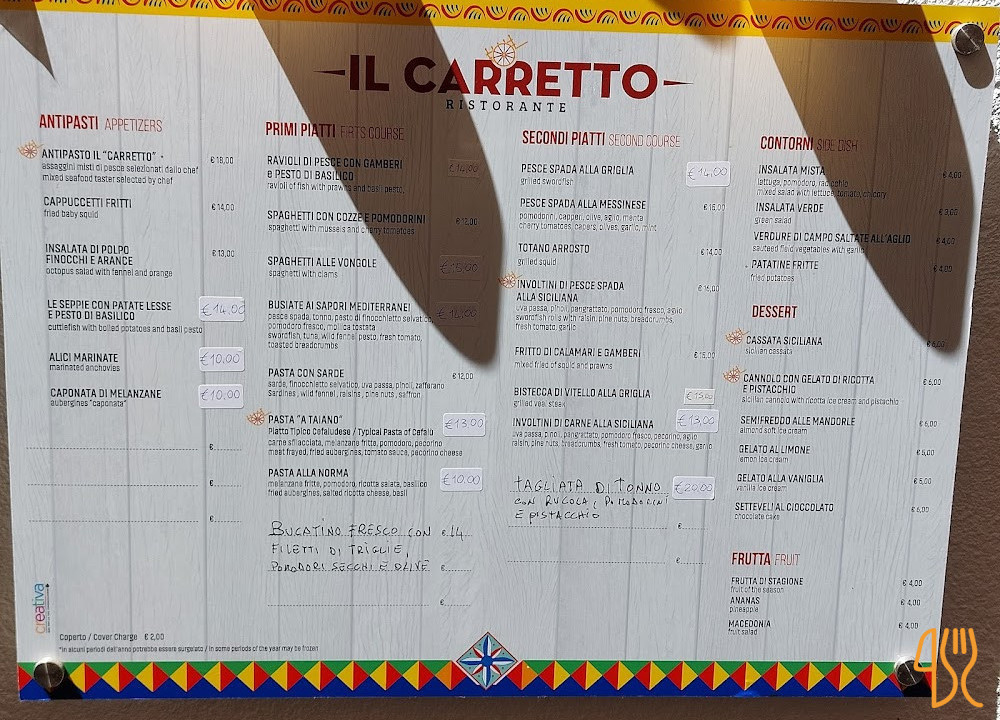 IL CARRETTO
RISTORANTE
ANTIPASTI APPETIZERS
ANTIPASTO IL "CARRETTO" € 18,00
assaggini misti di pesce selezionati dallo chef
mixed seafood taster selected by chef
CAPPUCCETTI FRITTI € 14,00
fried baby squid
INSALATA DI POLPO € 13,00
FINOCCHI E ARANCE
octopus salad with fennel and orange
LE SEPPIE CON PATATE LESSE €14,00
E PESTO DI BASILICO
cuttlefish with boiled potatoes and basil pesto
ALICI MARINATE €10,00
marinated anchovies
CAPONATA DI MELANZANE €10,00
aubergines "caponata"
€
€
€
PRIMI PIATTI FIRTS COURSE
RAVIOLI DI PESCE CON GAMBERI €14,00
E PESTO DI BASILICO
ravioli of fish with prawns and basil pesto,
SPAGHETTI CON COZZE E POMODORINI € 12,00
spaghetti with mussels and cherry tomatoes
SPAGHETTI ALLE VONGOLE
spaghetti with clams
BUSIATE AI SAPORI MEDITERRANEI €14,00
pesce spada, tonno, pesto di finocchietto selvatico,
pomodoro fresco, mollica tostata
swordfish, tuna, wild fennel pesto, fresh tomato,
toasted breadcrumbs
PASTA CON SARDE € 12,00
sarde, finocchietto selvatico, uva passa, pinoli, zafferano
Sardines , wild fennel , raisins , pine nuts , saffron
PASTA "A TAIANO" €13,00
Piatto Tipico Cefaludese / Typical Pasta of Cefalù
carne sfilacciata, melanzane fritte, pomodoro, pecorino
meat frayed, fried aubergines, tomato sauce, pecorino cheese
PASTA ALLA NORMA €10,00
melanzane fritte, pomodoro, ricotta salata, basilico
fried aubergines, salted ricotta cheese, basil
BUCATINO FRESCO CON € 14
FILETTI DI TRIGLIE,
POMODORI SECCHI E OLIVE €
€
SECONDI PIATTI SECOND COURSE
PESCE SPADA ALLA GRIGLIA €14,00
grilled swordfish
PESCE SPADA ALLA MESSINESE
pomodorini, capperi, olive, aglio, menta
cherry tomatoes, capers, olives, garlic, mint
TOTANO ARROSTO € 14,00
grilled squid
INVOLTINI DI PESCE SPADA
ALLA SICILIANA
uva passa, pinoli, pangrattato, pomodoro fresco, aglio
swordfish rolls with raisin, pine nuts, breadcrumbs,
fresh tomato, garlic
FRITTO DI CALAMARI E GAMBERI € 15,00
mixed fried of squid and prawns
BISTECCA DI VITELLO ALLA GRIGLIA € 15,00
grilled veal steak
INVOLTINI DI CARNE ALLA SICILIANA €13,00
uva passa, pinoli, pangrattato, pomodoro fresco, pecorino, aglio
raisin, pine nuts, breadcrumbs, fresh tomato, pecorino cheese, garlic
TAGLIATA DI TONNO €20,00
CON RUCOLA, POMODORINI
E PISTACCHIO
€
€
CONTORNI SIDE DISH
INSALATA MISTA € 4,00
lattuga, pomodoro, radicchio
mixed salad with lettuce, tomato, chicory
INSALATA VERDE € 3,00
green salad
VERDURE DI CAMPO SALTATE ALL'AGLIO € 4,00
sauteed field vegetables with garlic
PATATINE FRITTE € 4,00
fried potatoes
DESSERT
CASSATA SICILIANA
sicilian cassata
CANNOLO CON GELATO DI RICOTTA
E PISTACCHIO
sicilian cannolo with ricotta ice cream and pistachio
SEMIFREDDO ALLE MANDORLE € 6,00
almond soft ice cream
GELATO AL LIMONE
lemon ice cream
GELATO ALLA VANIGLIA € 5,00
vanilla ice cream
SETTEVELI AL CIOCCOLATO
chocolate cake
FRUTTA FRUIT
FRUTTA DI STAGIONE € 4,00
fruit of the season
ANANAS € 4,00
pineapple
MACEDONIA € 4,00
fruit salad
creativa
Coperto / Cover Charge € 2,00
*in alcuni periodi dell'anno potrebbe essere surgelato / in some periods of the year may be frozen